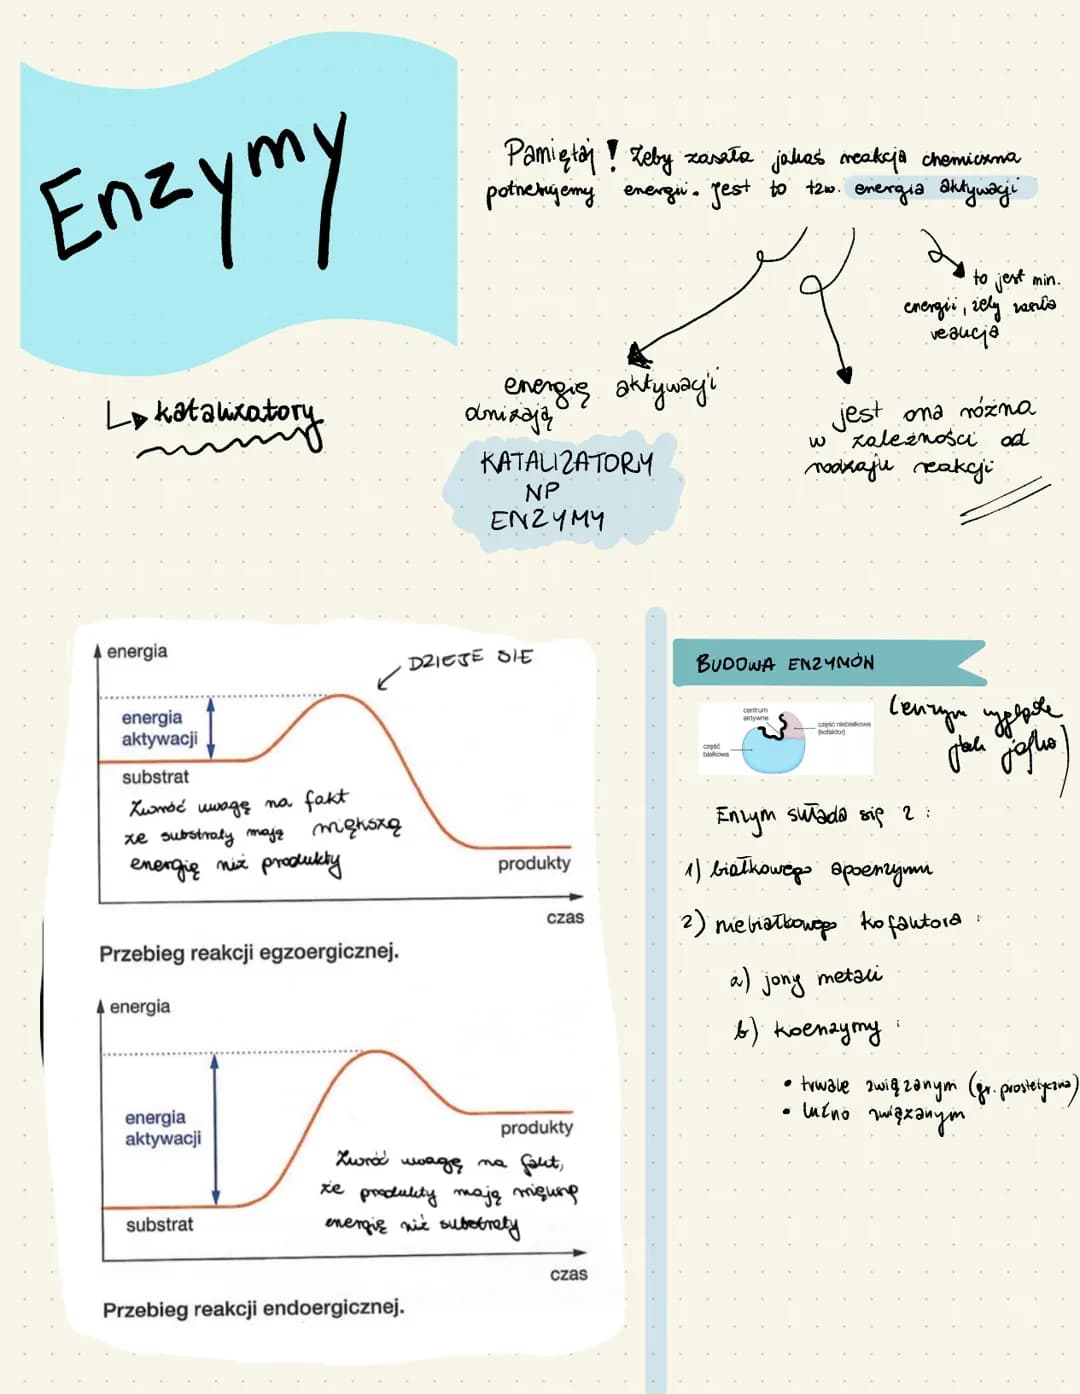 Enzymy
↳ katalizatory
Pamiętaj! Żeby zaszła jakaś reakcja chemiczna
potrzebujemy energii. Jest to tzw. energia aktywacji
to jest min.
energii, żeby zaszła
reakcja
energię aktywacji
obniżają
KATALIZATORY
NP
ENZYMY
jest ona różna
w zależności od
rodzaju reakcji
energia
DZIEJE SIE
energia
aktywacji
substrat
Zwróć uwagę na fakt
że substraty mają większą
energię niż produkty
produkty
czas
Przebieg reakcji egzoergicznej.
energia
energia
aktywacji
produkty
Zwróć uwagę na fakt,
że produkty mają większą
energię niż substraty
substrat
czas
Przebieg reakcji endoergicznej.
BUDOWA ENZYMÓW
centrum
aktywne
część niebiałkowa
(kofaktor)
część
białkowa
wygląda
jak jajko)
Enzym składa się z :
1) białkowego apoenzymu
2) niebiałkowego kofaktora :
a) jony metali
b) koenzymy :
• trwale związanym (gr. prostetyczna)
• luźno związanym